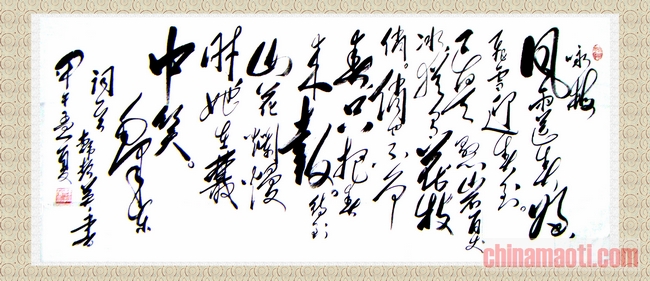 咏梅
风雨送春归,
飞雪迎春到。
已是悬岩百丈
冰犹有花枝
俏。俏也不争
春只把春
来报。待到
山花爛漫
时她在叢
中笑。
毛泽东
词
甲午夏
chinamaoti.com